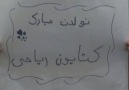 تولدت مبارک
کتایون ریاحی